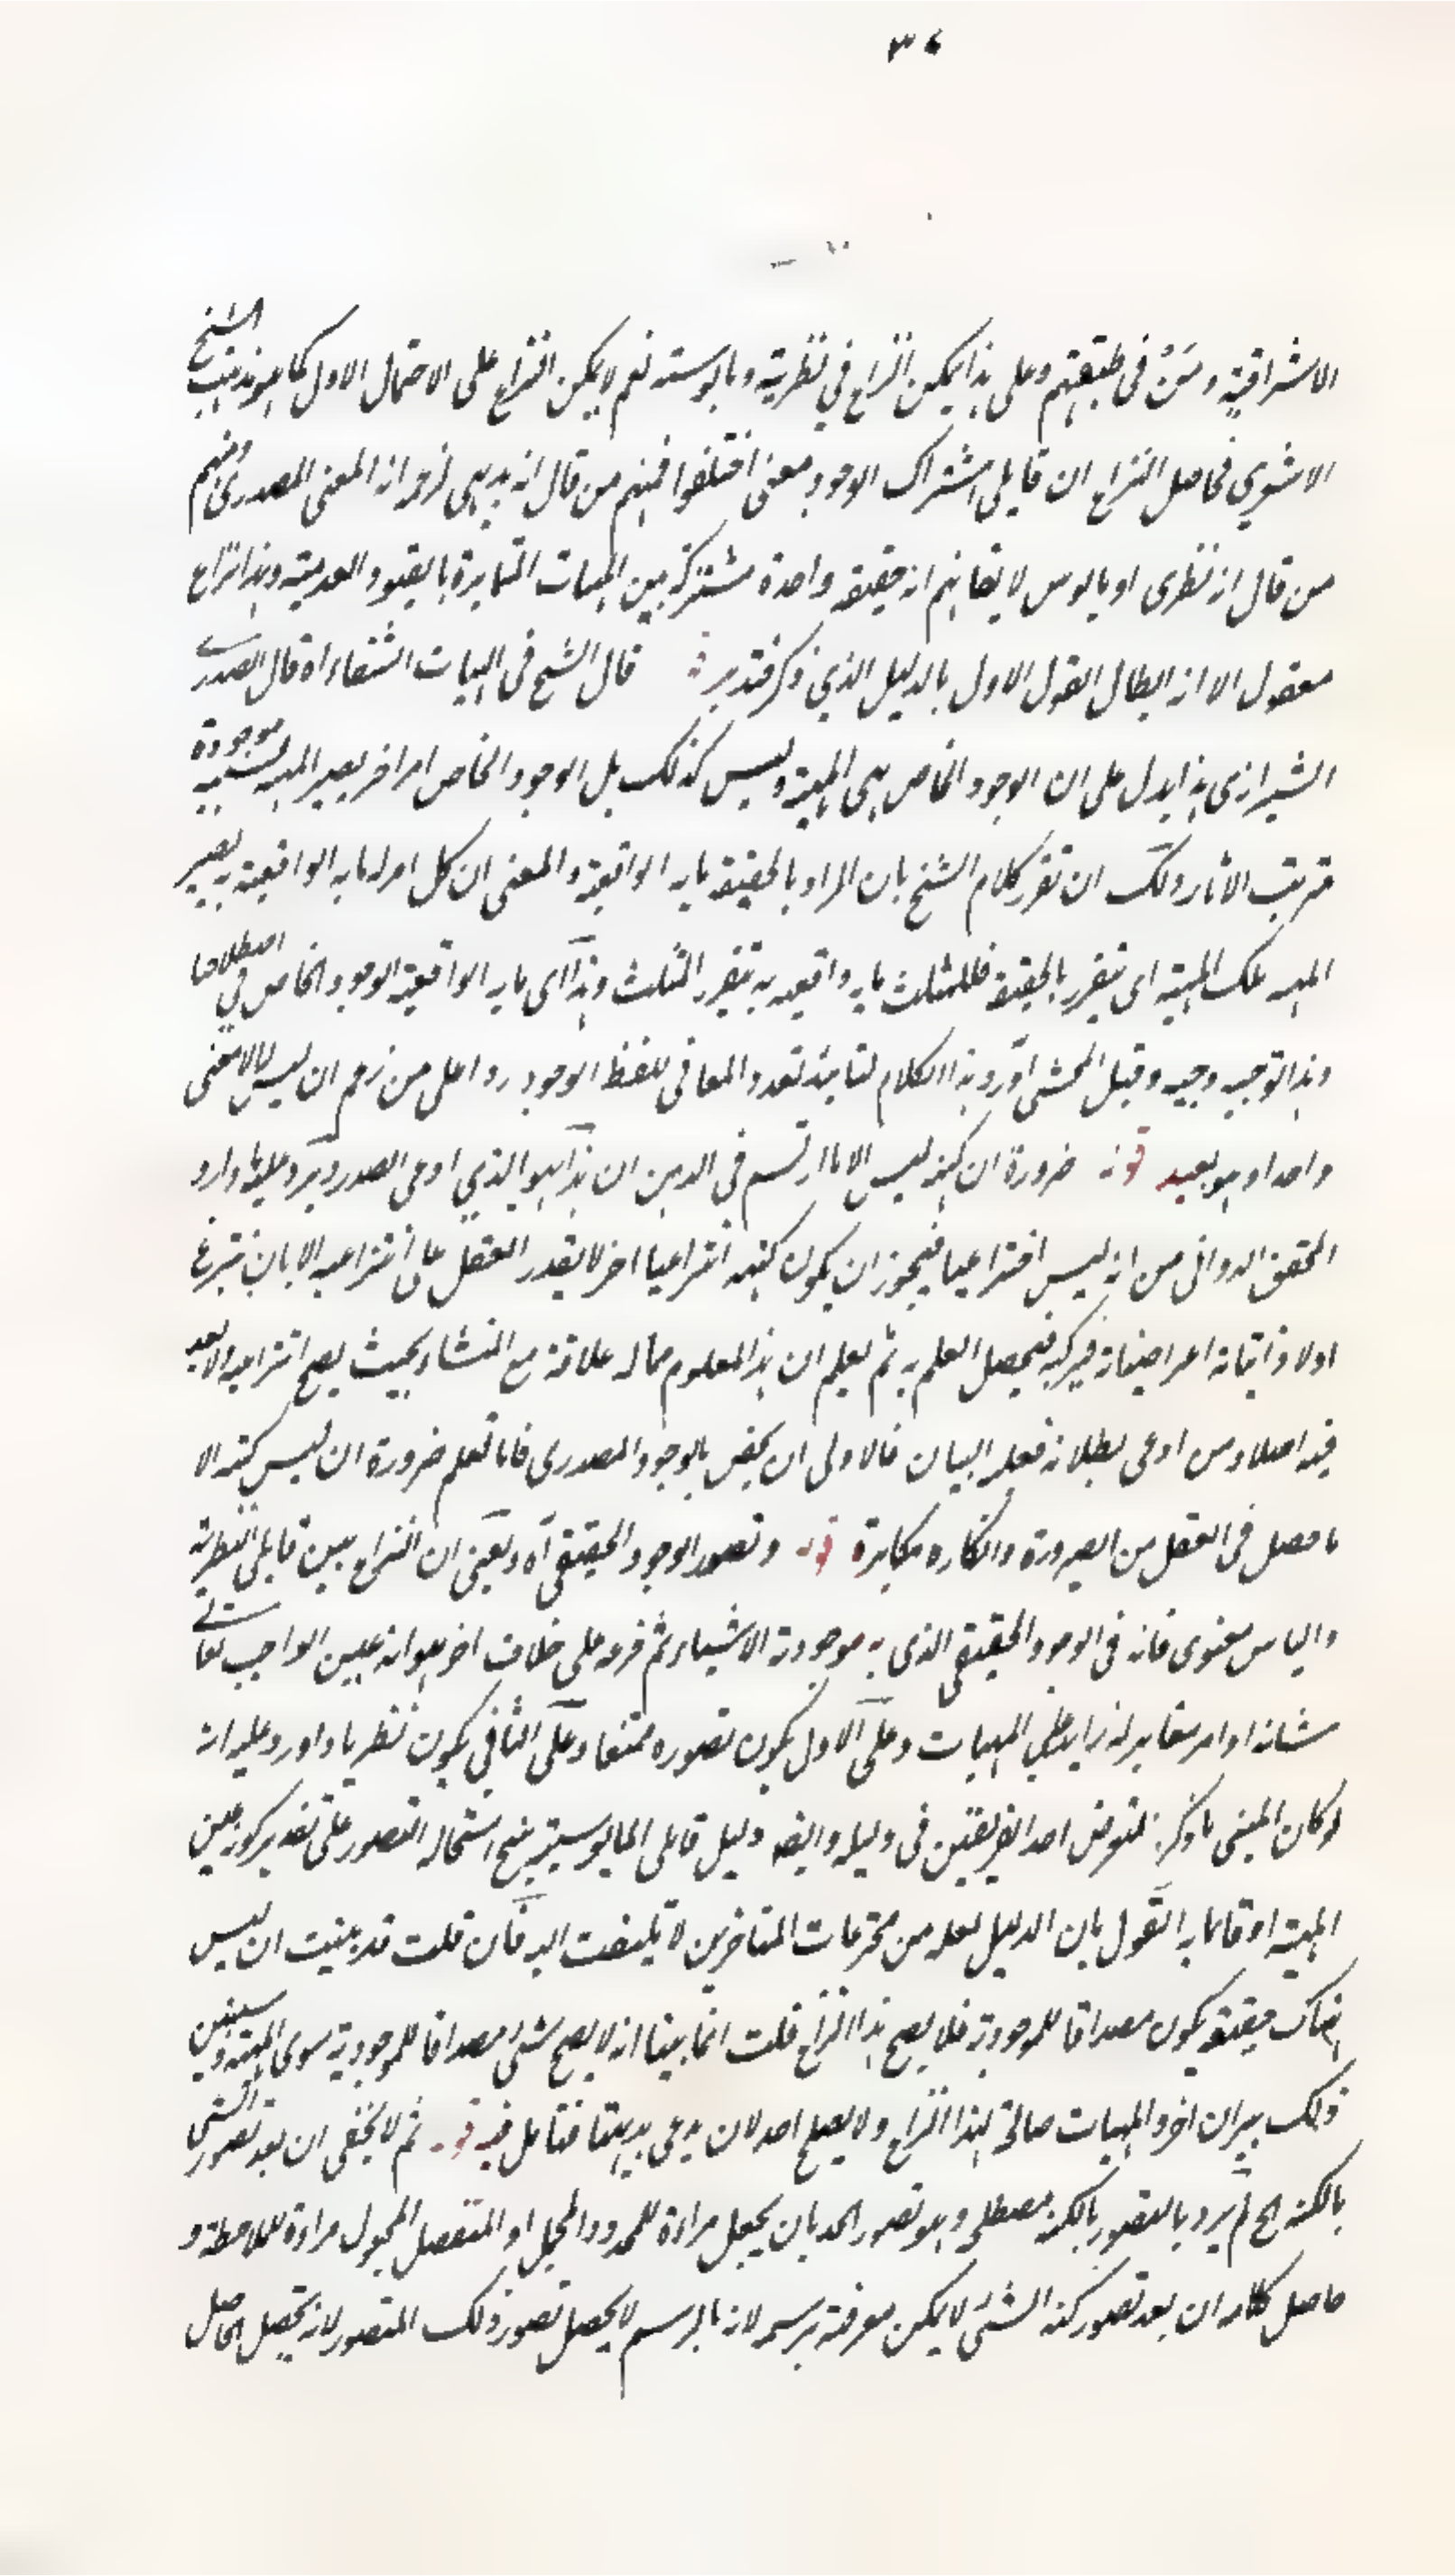 الاشراقية ومن في طبقتهم وعلى هذا يمكن النزاع في نظريته ومايوسيته نعم لا يمكن النزاع على الاحتمال الاول كما هو مذهب الشيخ
الاشعري فحاصل النزاع ان قايلي اشتراك الوجود معنى اختلفوا فمنهم من قال انه بديهي لزعم انه المعنى المصدري ومنهم
من قال انه نظري او مايوس لايقانهم انه حقيقة واحدة مشتركة بين المهيات المتمايزة بالقيود العدمية وهذا نزاع
معقول الا انه ابطال القول الاول بالدليل الذي ذكر فتدبر قوله قال الشيخ في الهيات الشفاء اه قال الصدر
الشيرازي هذا يدل على ان الوجود الخاص هي المهية وليس كذلك بل الوجود الخاص امر اخر يصير المهية بسببه موجودة
مترتب الاثار ولك ان تقرر كلام الشيخ بان المراد بالحقيقة ما به الواقعية والمعنى ان كل امر له ما به الواقعية به يصير
المهية تلك المهية اي يتقرر بالحقيقة فللمثلث ما به واقعيته به يتقرر المثلث وهذا اي ما به الواقعية الوجود الخاص في اصطلاحنا
وهذا توجيه وجيه وقيل المحشي اورد هذا الكلام لتائيد تعدد المعاني للفظ الوجود ردا على من زعم ان ليس له الا معنى
واحدا وهو بعيد قوله ضرورة ان كنهه ليس الا ما ارتسم في الذهن ان هذا هو الذي ادعى الصدر ويرد عليه ما اورد
المحقق الدواني من انه ليس اختراعيا فيجوز ان يكون كنهه انتزاعيا اخر لا يقدر العقل على انتزاعه الا بان ينتزع
اولا ذاتياته او عرضياته فيركبه فيحصل العلم به ثم يعلم ان هذا المعلوم مما له علاقة مع المنشاء بحيث يصح انتزاعه ولا بعد
فيه اصلا ومن ادعى بطلانه فعليه البيان فالاولى ان يخص بالوجود المصدري فانا نعلم ضرورة ان ليس كنهه الا
ما حصل في العقل من الصيرورة وانكاره مكابرة قوله وتصور الوجود الحقيقي اه ويعني ان النزاع بين قايلي النظرية
والياس معنوي فانه في الوجود الحقيقي الذي به موجودية الاشياء ثم فرعه على خلاف اخر هو انه عين الواجب تعالى
شانه او امر مغاير له زايد على المهيات وعلى الاول يكون تصوره ممتنعا وعلى الثاني يكون نظريا واورد عليه انه
لو كان المبنى ما ذكر لتعرض احد الفريقين في دليله وايضا دليل قايلي المايوسية ينتج استحالة التصور على تقدير كونه عين
المهية او قائما به القول بان الدليل لعله من مخترعات المتاخرين لا يلتفت اليه فان قلت قد بينت ان ليس
هناك حقيقة يكون مصداقا للموجودية فلا يصح هذا النزاع قلت انما بينا انه لا يصح شئ مصداقا للموجودية سوى المهية وبين
ذلك يبران اخر والمهيات صالحة لهذا النزاع ولا يصلح احد لان يدعى بديهتها فتامل فيه قوله ثم لا يخفى ان بعد تصور الشئ
بالكنه الخ لم يرد بالتصور بالكنه مصطلح وهو تصور الحد بان يجعل مراءة للمحدود المجمل او المتفصل المجعول مراءة للملاحظة و
حاصل كلامه ان بعد تصور كنه الشئ لا يمكن معرفته برسم لانه بالرسم لا يحصل تصور ذلك المتصور لانه تحصيل الحاصل